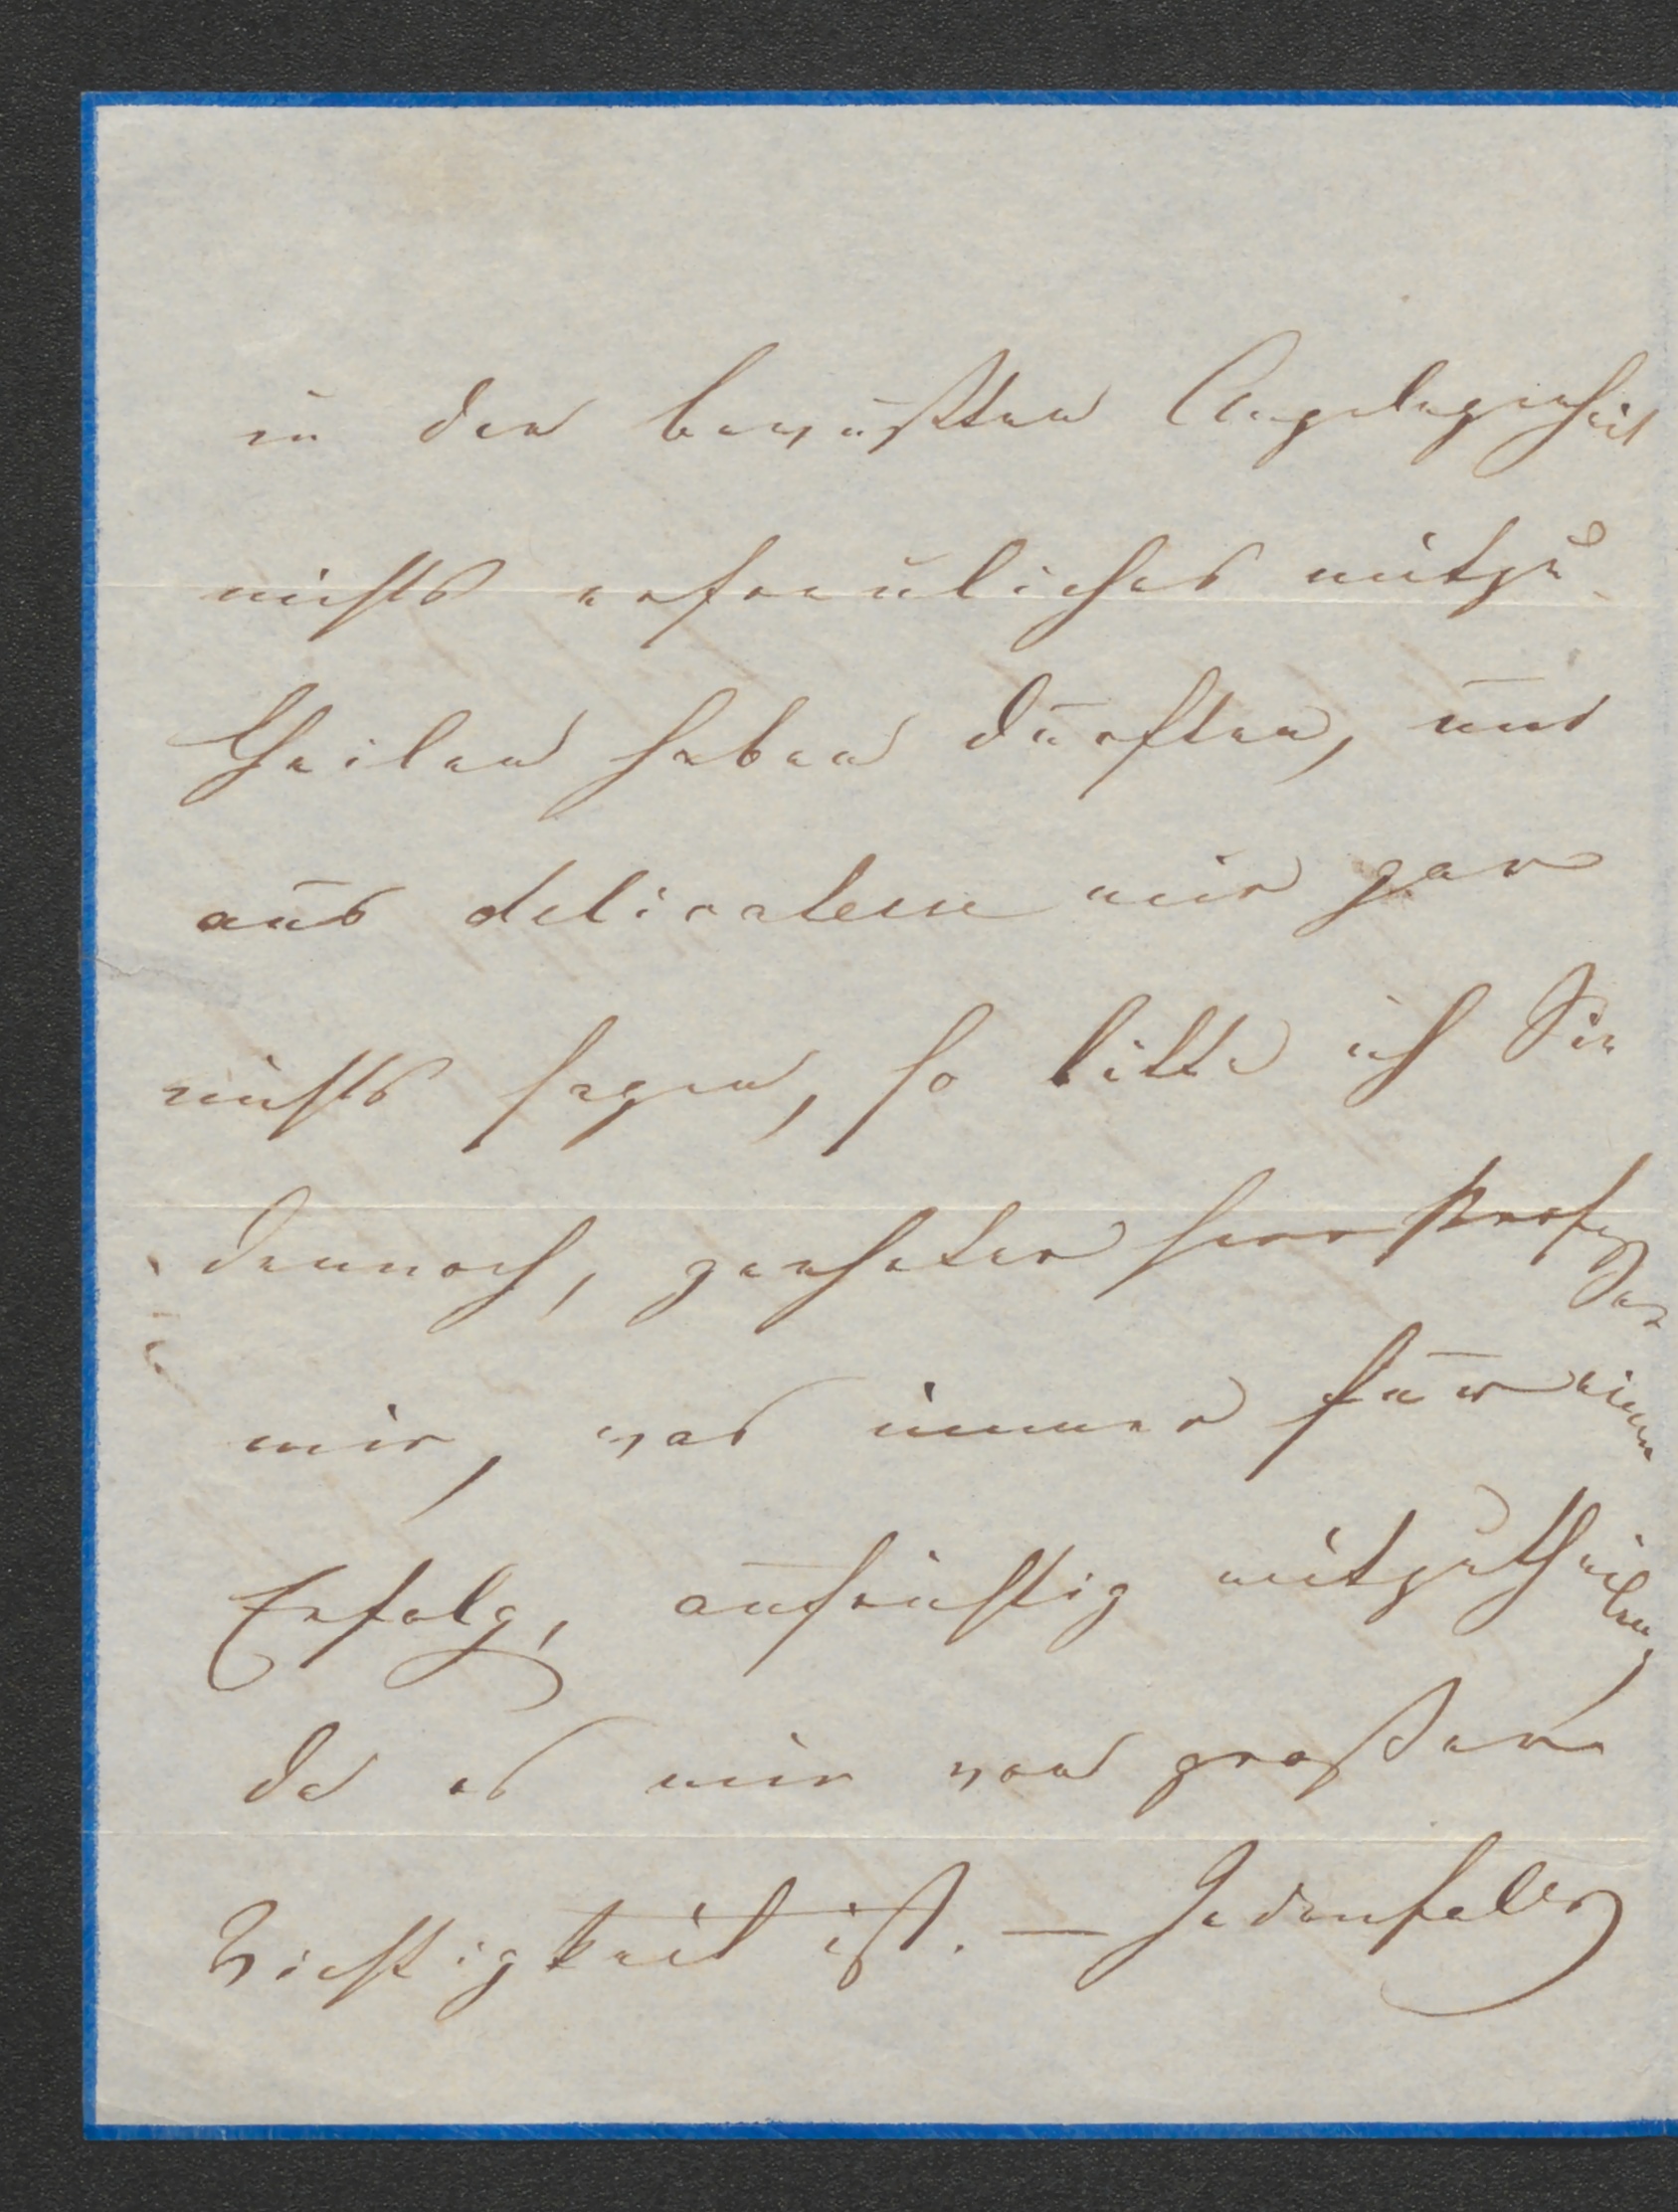 in der bewußten Angelegenheit
nichts erfreuliches mitzu
theilen haben dürften, und
aus delicatesse mir gar
nichts sagen, so bitte ich Sie
dennoch, geehrter Herr Professor
mir, was immer für einen
Erfolg, aufrichtig mitzutheilen,
da es mir von großer
Wichtigkeit ist. — Jedenfalls